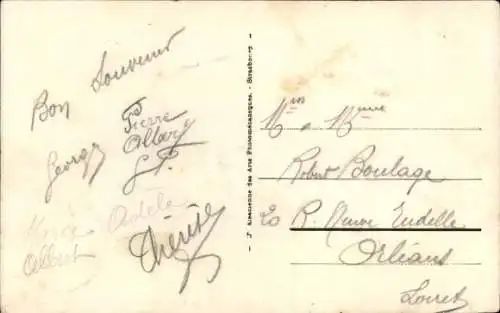 Bon Souvenir
Pierre
Georges
G.P.
Adèle
Albert
Thérèse
- Alsacienne des Arts Photomécaniques. - Strasbourg -
Mr & Mme
Robert Boulage
20 R. Neuve Tudelle
Orléans
Loiret